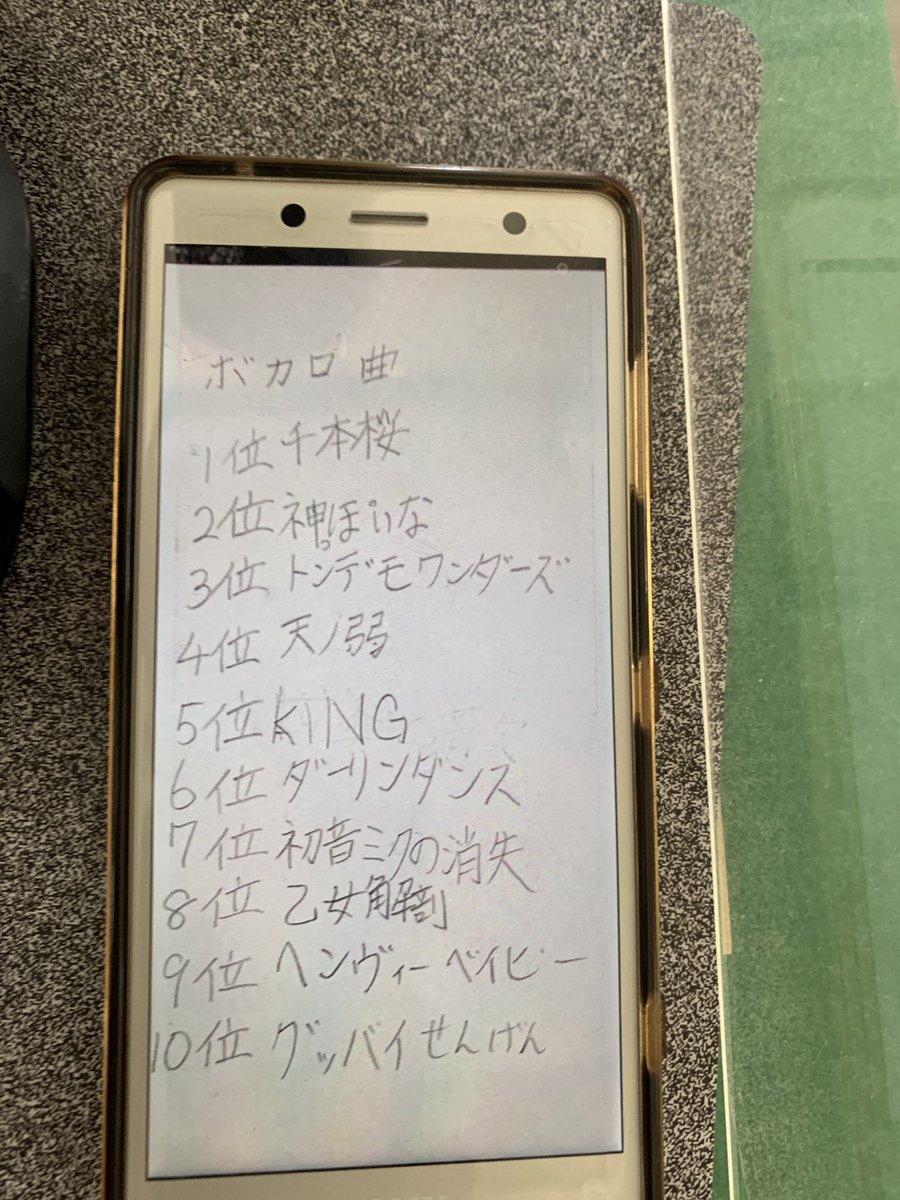 ボカロ曲
1位 千本桜
2位 神っぽいな
3位 トンデモワンダーズ
4位 天ノ弱
5位 KING
6位 ダーリンダンス
7位 初音ミクの消失
8位 乙女解剖
9位 ヘンヴィーベイビー
10位 グッバイせんげん